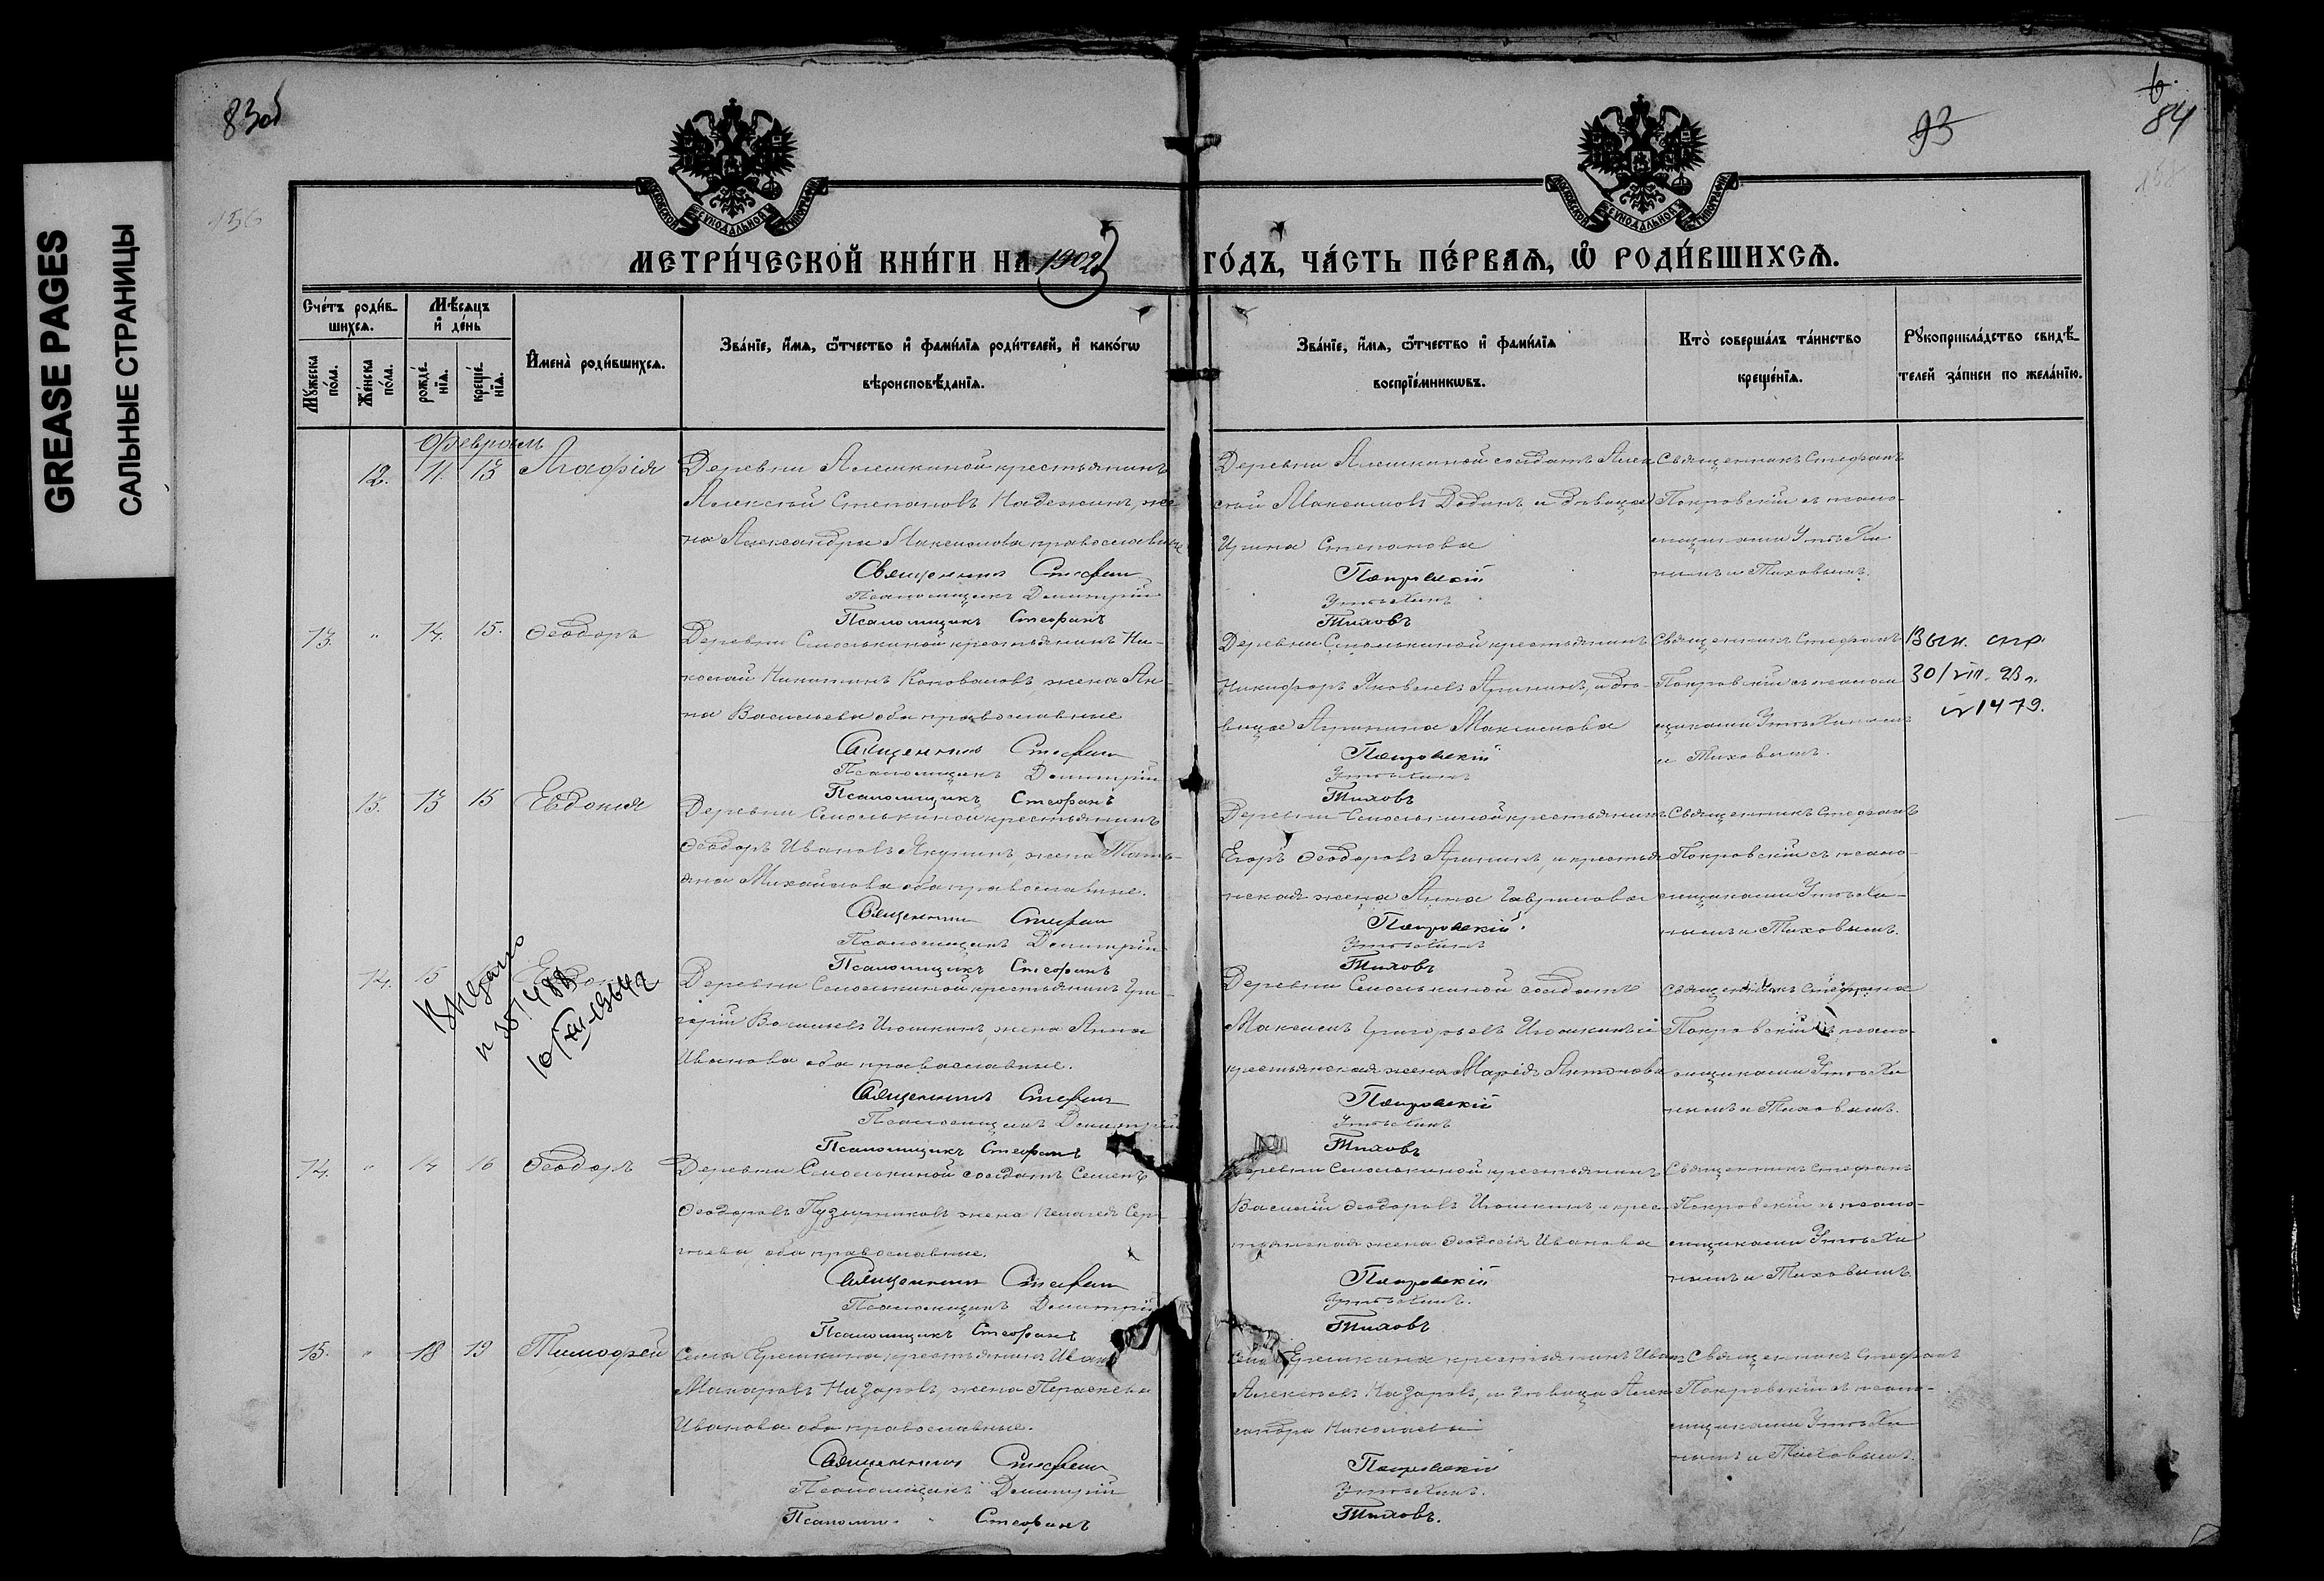 GREASE PAGES
САЛЬНЫЕ СТРАНИЦЫ
83об
84
93
156
МОСКОВСКОЙ СѴНОДАЛЬНОЙ ТИПОГРАФІИ
МОСКОВСКОЙ СѴНОДАЛЬНОЙ ТИПОГРАФІИ
МЕТРИ́ЧЕСКОЙ КНИ́ГИ НА 1902 ГО́ДЪ, ЧА́СТЬ ПЕ́РВАЯ, Ѡ РОДИ́ВШИХСЯ.
Сче́тъ роди́в-
шихся.
Мѣ́сяцъ
и де́нь
Му́жеска по́ла.
Же́нска по́ла.
рожде́-
нїя.
креще́-
нїя.
И́мена̀ роди́вшихся.
Зва́нїе, и́мя, ѻ́тчество и фами́лїя роди́телей, и како́гѡ
вѣроисповѣ́данїя.
Зва́нїе, и́мя, ѻ́тчество и фами́лїя
воспрїе́мникѡвъ.
Кто̀ соверша́лъ та́инство
креще́нїя.
Рꙋкоприкла́дство свидѣ́-
телей за́писи по жела́нїю.
Февраль
12. 11. 13 Агафія
Деревни Алешкиной крестьянинъ
Алексѣй Степановъ Надежкинъ, же-
на Александра Максимова православные
Священникъ Стефан
Псаломщикъ Димитрій
Псаломщикъ Стефанъ
Деревни Алешкиной солдатъ Алек
сѣй Максимовъ Дедикъ и дѣвица
Ирина Степанова
Покровскій
Утѣхинъ
Тиховъ
Священникъ Стефанъ
Покровскій съ псало-
мщиками Утѣхи
нымъ и Тиховымъ.
13. " 14. 15. Ѳеодоръ
Деревни Смолькиной крестьянинъ Ни-
колай Никитинъ Коноваловъ жена Ан-
на Васильева оба православные
Священникъ Стефан
Псаломщикъ Димитрій
Псаломщикъ Стефанъ
Деревни Смолькиной крестьянинъ
Никифоръ Яковлевъ Аринкинъ, и дѣ-
вица Максимова
Покровскій
Утѣхинъ
Тиховъ
Священникъ Стефанъ
Покровскій съ псалом
щиками Утѣхинымъ
и Тиховымъ.
Вып. спр.
30/VIII-23 г.
№1479.
13. 13 15 Евдокія
Деревни Смолькиной крестьянинъ
Ѳеодоръ Ивановъ Якунинъ, жена Тать-
яна Михайлова оба православные.
Священникъ Стефан
Псаломщикъ Димитрій
Псаломщикъ Стефанъ
Деревни Смолькиной крестьянинъ
Егоръ Ѳеодоровъ Аринкинъ, и крестья
нская жена Анна Гаврилова
Покровскій
Утѣхинъ
Тиховъ
Священникъ Стефанъ
Покровскій съ псало-
мщиками Утѣхи-
нымъ и Тиховымъ.
14. 15 Евдокія
10/XII-1964 г
Деревни Смолькиной крестьянинъ Гри-
горій Васильевъ Игошкинъ, жена Анна
Иванова оба православные.
Священникъ Стефан
Псаломщикъ Димитрій
Псаломщикъ Стефанъ
Деревни Смолькиной солдатъ
Максимъ Григорьевъ Игошкинъ и
крестьянская жена Марія Антонова
Покровскій
Утѣхинъ
Тиховъ
Священникъ Стефанъ
Покровскій съ псало-
мщиками Утѣхи
нымъ и Тиховымъ.
14. " 14 16 Ѳеодоръ
Деревни Смолькиной солдатъ Семенъ
Ѳеодоровъ Пузырниковъ жена Пелагея Сер-
гѣева, оба православные.
Священникъ Стефан
Псаломщикъ Димитрій
Псаломщикъ Стефанъ
Деревни Смолькиной крестьянинъ
Василій Ѳеодоровъ Игошкинъ и крес-
тьянская жена Ѳеодосія Иванова
Покровскій
Утѣхинъ.
Тиховъ
Священникъ Стефанъ
Покровскій съ псало-
мщиками Утѣхи
нымъ и Тиховымъ.
15. " 18 19 Тимофей
Села Еремкина, крестьянинъ Иванъ
Макаровъ Назаровъ, жена Параскева
Иванова оба православные.
Священникъ Стефан
Псаломщикъ Димитрій
Псаломщ. Стефанъ
Села Еремкина крестьянинъ Иванъ
Алексѣевъ Назаровъ, и дѣвица Алек
сандра Николаева
Покровскій
Утѣхинъ.
Тиховъ.
Священникъ Стефанъ
Покровскій съ псало-
мщиками Утѣхи
нымъ и Тиховымъ.